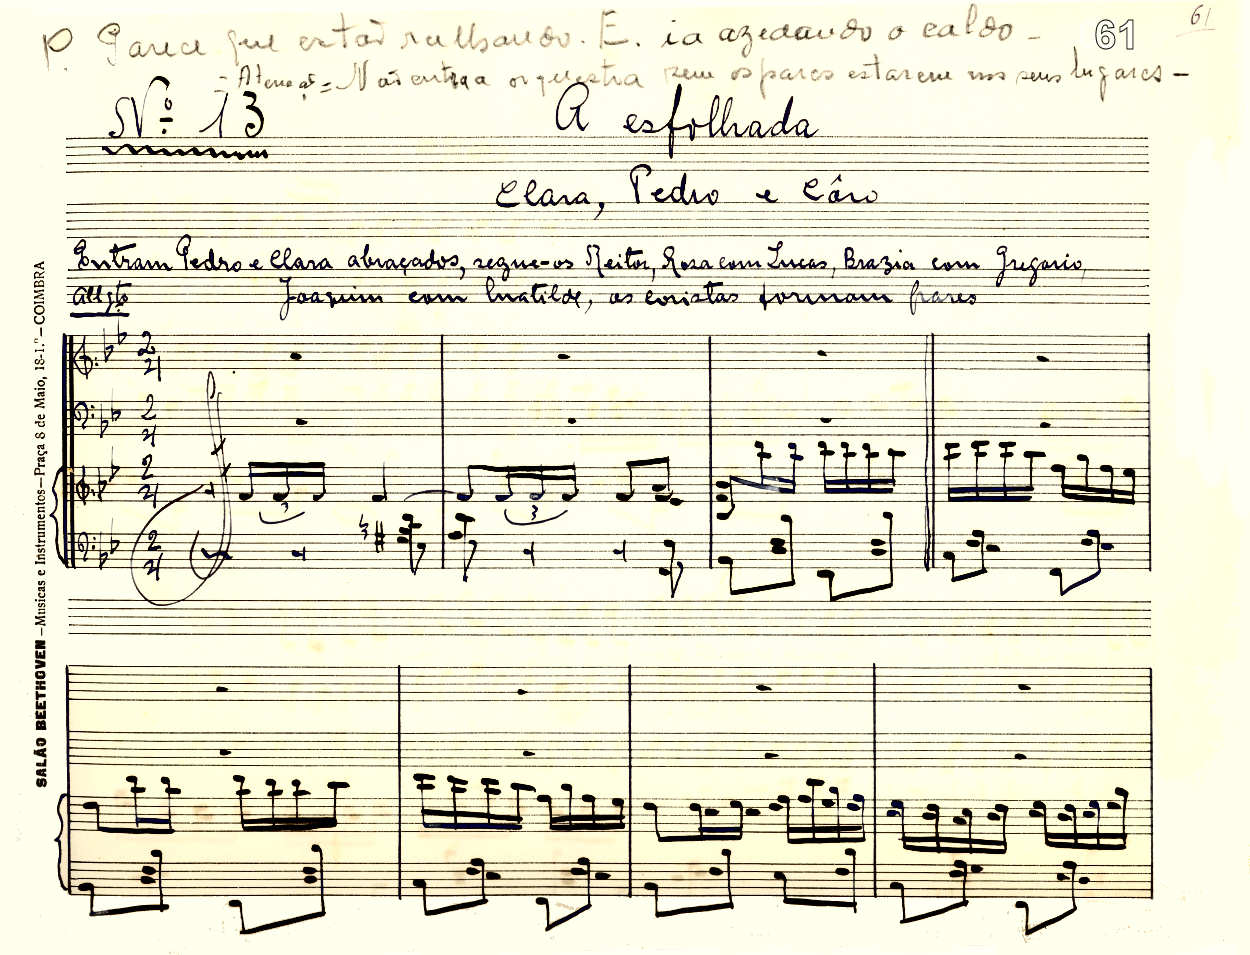 P. Parece que estão ralhando. E. ia azedando o caldo - 61 61
= Atenção = Não entra a orquestra sem os pares estarem nos seus lugares -
Nº 13 A esfolhada
Clara, Pedro e Côro
Entram Pedro e Clara abraçados, segue-os Reitor, Rosa com Lucas, Brazia com Gregorio,
Allgtto Joaquim com Matilde, os coristas formam pares
2 4
2 4
2 4
3 3
2 4
SALÃO BEETHOVEN — Musicas e Instrumentos — Praça 8 de Maio, 18-1.º — COIMBRA